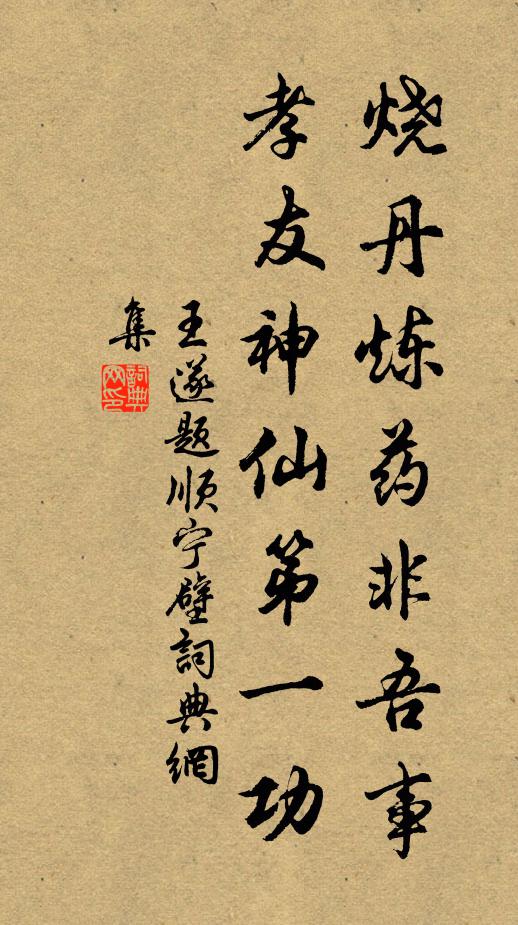 烧丹炼药非吾事
孝友神仙第一功
王遂题顺宁壁詞典網
集
詞典
网印